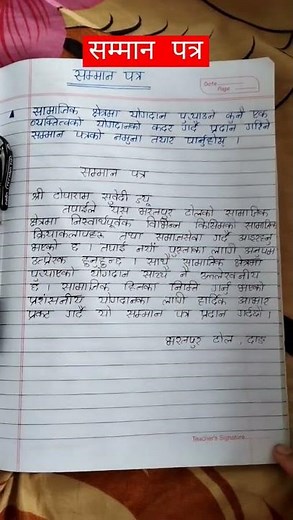 सम्मान पत्र
सम्मान पत्र
Date
Page
सामाजिक क्षेत्रमा योगदान पुर्‍याउने कुनै एक
व्यक्तित्वको योगदानको कदर गर्दै प्रदान गरिने
सम्मान पत्रको नमुना तयार पार्नुहोस् ।
सम्मान पत्र
श्री टोपाराम सुवेदी ज्यू
तपाईंले यस भरतपुर टोलको सामाजिक
क्षेत्रमा निस्वार्थपूर्वक विभिन्न किसिमका सामाजिक
क्रियाकलापहरू तथा समाजसेवा गर्दै आउनु
भएको छ । तपाईं नयाँ पुस्ताका लागि अनुपम
उत्प्रेरक हुनुहुन्छ । साथै सामाजिक क्षेत्रमा
पुर्‍याएको योगदान साच्चै नै उल्लेखनीय
छ । सामाजिक हितका निम्ति गर्नु भएको
प्रशंसनीय योगदानका लागि हार्दिक आभार
प्रकट गर्दै यो सम्मान पत्र प्रदान गर्दछौं ।
भरतपुर टोल, दाङ
Teacher's Signature